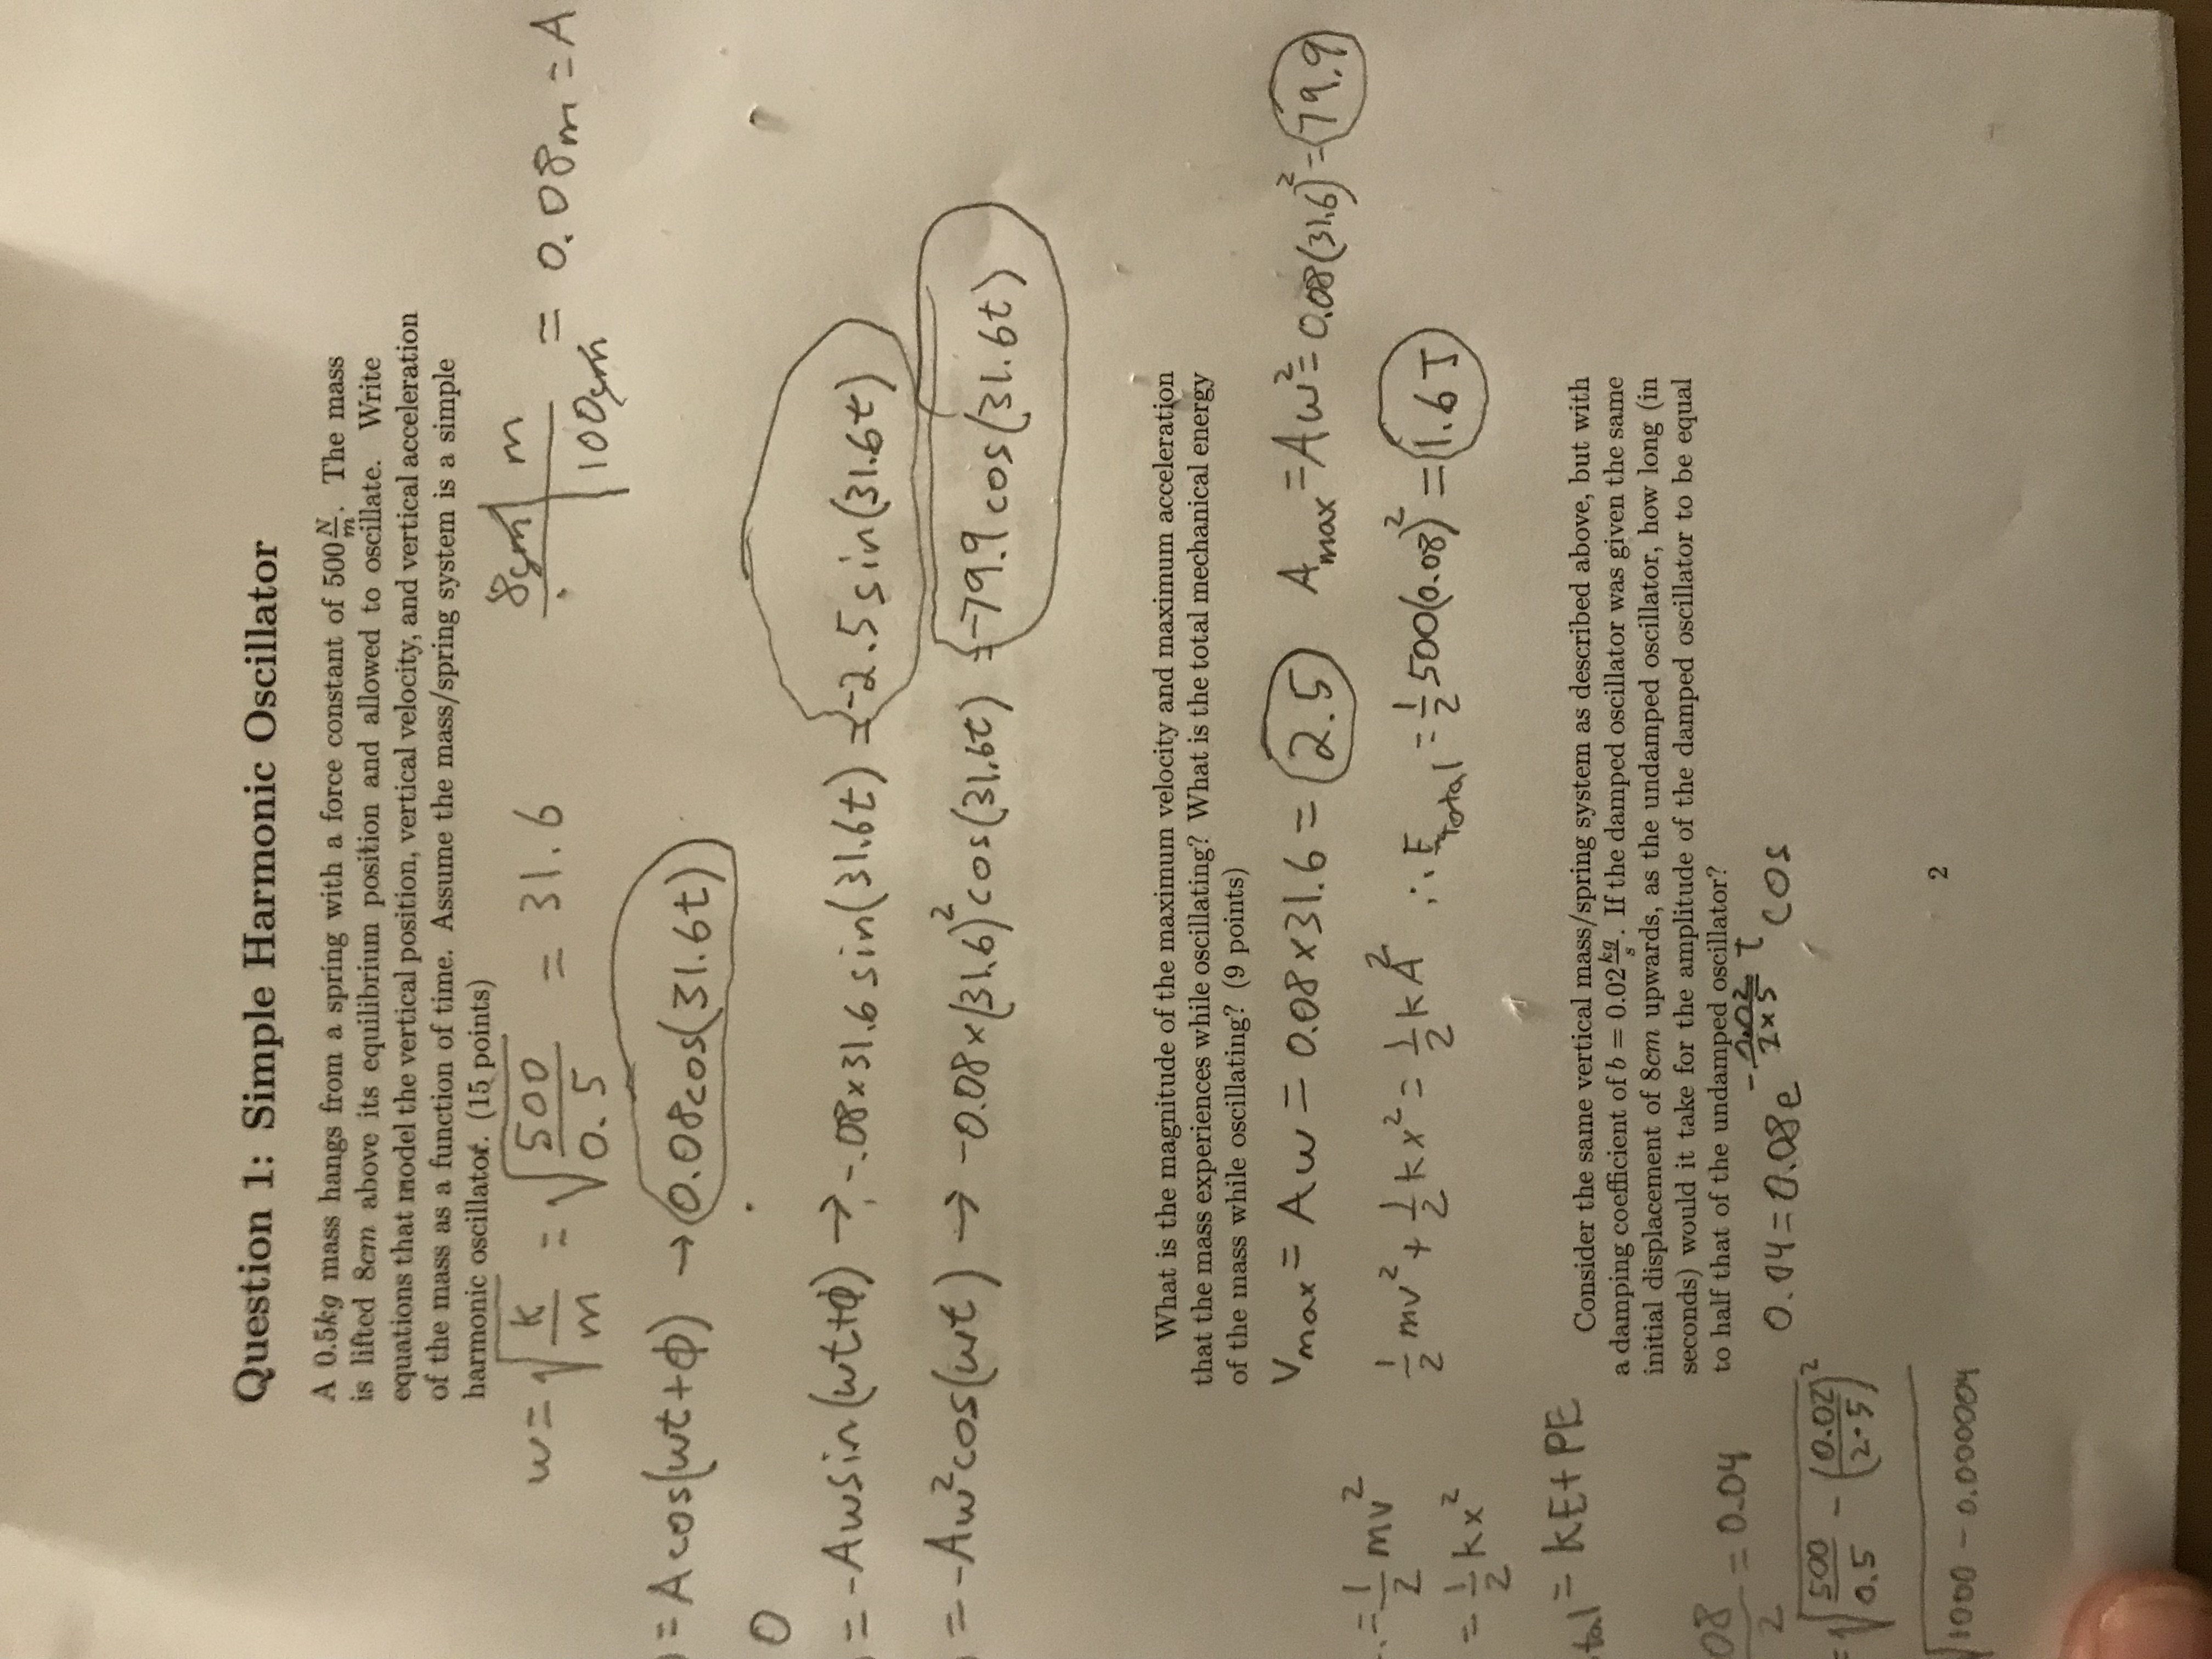 Question 1: Simple Harmonic Oscillator
A 0.5kg mass hangs from a spring with a force constant of 500 N/m. The mass
is lifted 8cm above its equilibrium position and allowed to oscillate. Write
equations that model the vertical position, vertical velocity, and vertical acceleration
of the mass as a function of time. Assume the mass/spring system is a simple
harmonic oscillator. (15 points)
w = √(k/m) = √(500/0.5) = 31.6
8cm | m / 100cm = 0.08m = A
= Acos(wt+φ) → 0.08cos(31.6t)
0
= -Awsin(wt+φ) → -.08×31.6sin(31.6t) = -2.5sin(31.6t)
= -Aw²cos(wt) → -0.08×(31.6)²cos(31.6t) = -79.9cos(31.6t)
What is the magnitude of the maximum velocity and maximum acceleration
that the mass experiences while oscillating? What is the total mechanical energy
of the mass while oscillating? (9 points)
Vmax = Aw = 0.08×31.6 = 2.5 Amax = Aw² = 0.08(31.6)² = 79.9
= 1/2 mv²
= 1/2 kx²
1/2 mv² + 1/2 kx² = 1/2 kA² ∴ Etotal = 1/2 500(0.08)² = 1.6J
tal = kE+PE
Consider the same vertical mass/spring system as described above, but with
a damping coefficient of b = 0.02 kg/s. If the damped oscillator was given the same
initial displacement of 8cm upwards, as the undamped oscillator, how long (in
seconds) would it take for the amplitude of the damped oscillator to be equal
to half that of the undamped oscillator?
08/2 = 0.04
0.04 = 0.08e^(-0.02/2×5 t) cos
= √(500/0.5 - (0.02/2·5)²)
√(1000 - 0.00004
2